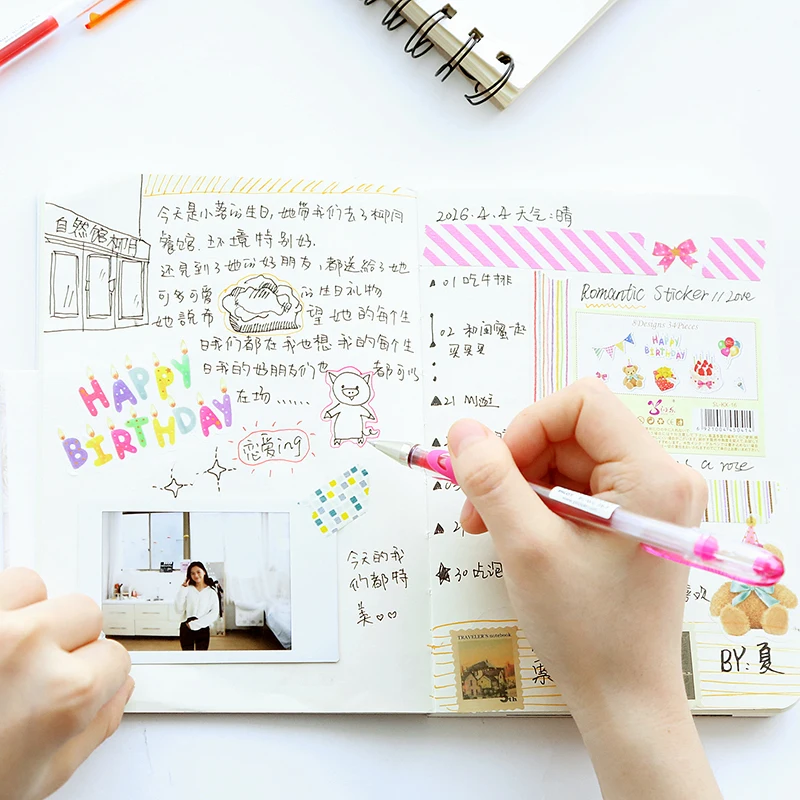 自然馆柳月
今天是小落的生日,她带我们去了柳月
餐馆.环境特别好.
还见到了她的好朋友,都送给了她
可多可爱的生日礼物
她说希望她的每个生
日我们都在我也想我的每个生
日我的好朋友们也都可以
在场......
HAPPY
BIRTHDAY
恋爱ing
今天的我
们都特
美♡♡
2026.4.4 天气:晴
01 吃牛排
02 和闺蜜一起
买买买
Romantic Sticker // Love
8Designs 34Pieces
HAPPY
BIRTHDAY
SL-KK-16
6927001450454
21
a rose
30 吃泡
TRAVELER'S notebook
5th
BY:夏